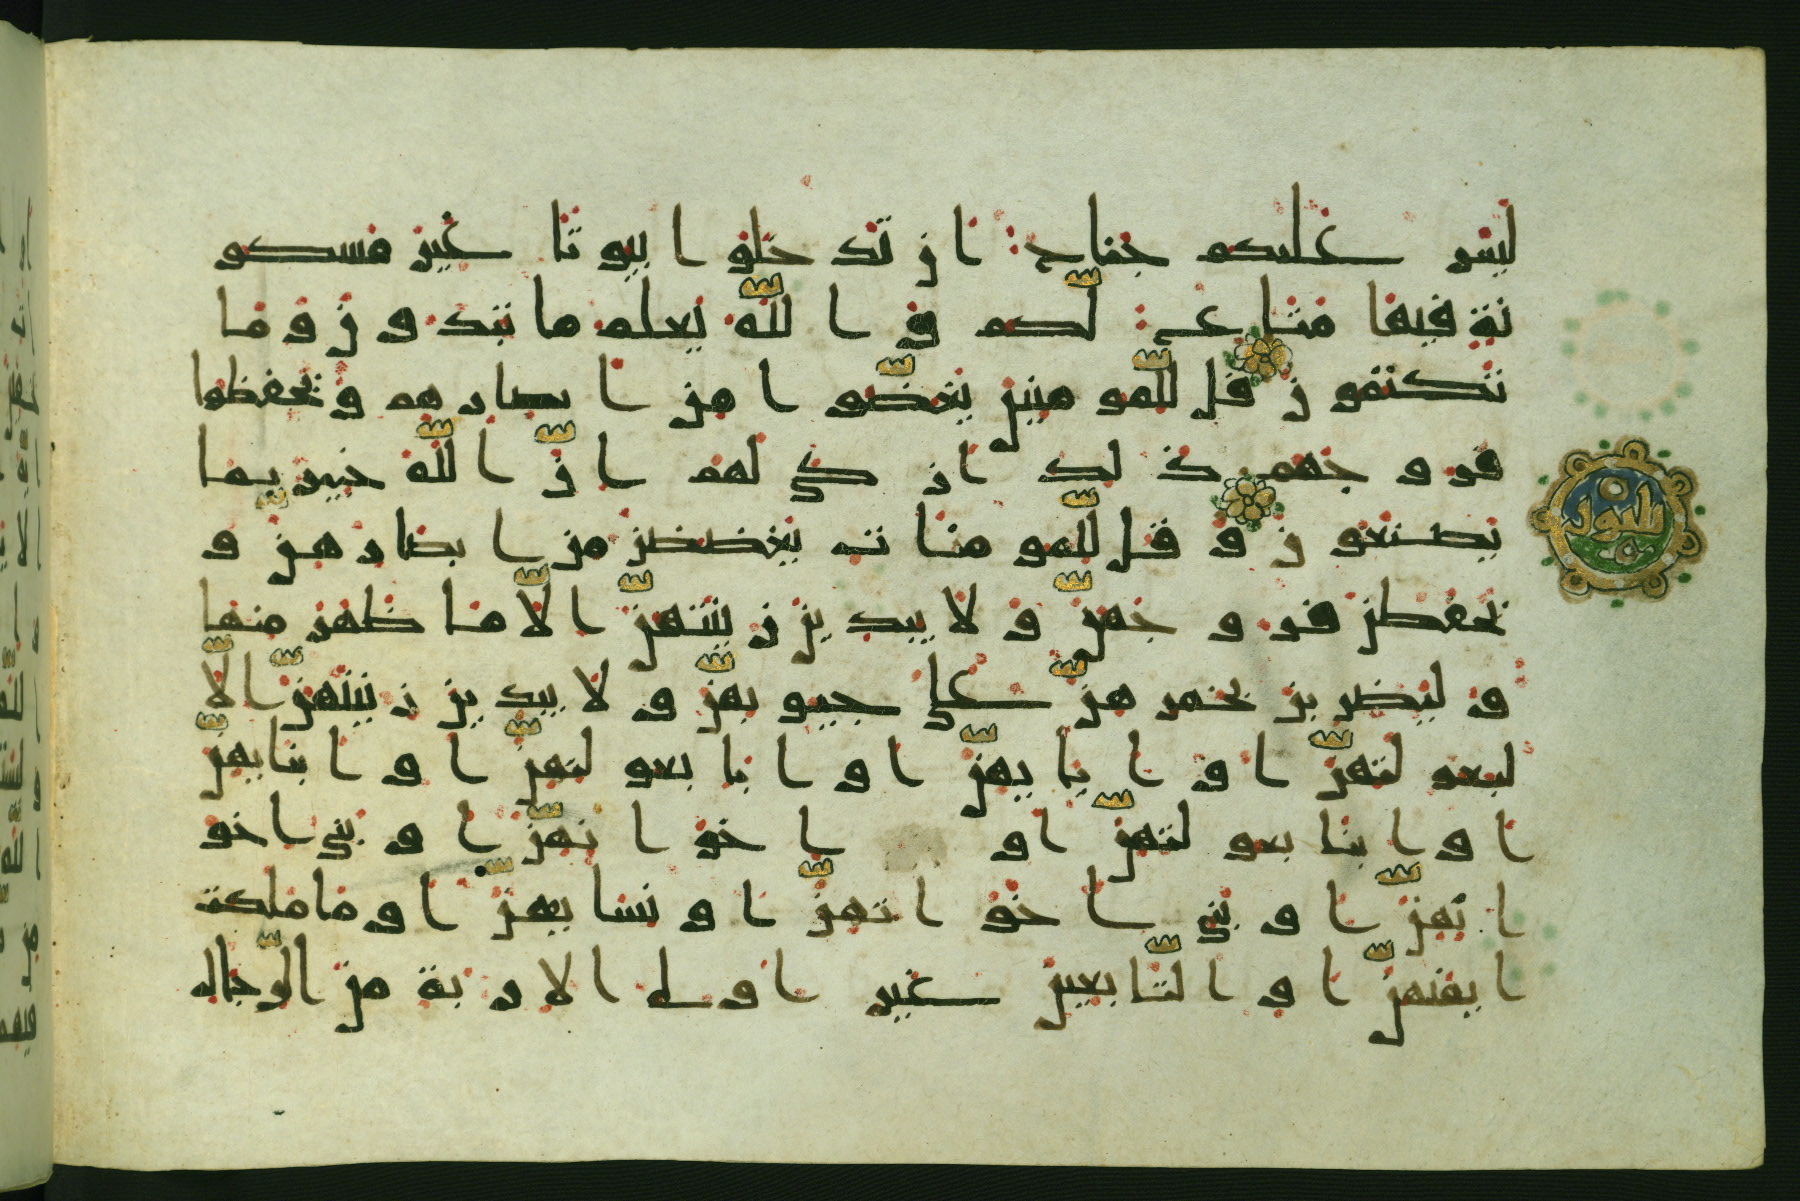 ليس عليكم جناح ان تدخلوا بيوتا غير مسكو
نة فيها متاع لكم و الله يعلم ما تبدون وما
تكتمون قل للمومنين يغضوا من ا بصارهم ويحفظوا
فروجهم ذلك ازكى لهم ان الله خبير بما
يصنعون و قل للمومنات يغضضن من ا بصارهن و
يحفظن فروجهن و لا يبدين زينتهن الا ما ظهر منها
و ليضربن بخمرهن على جيوبهن و لا يبدين زينتهن الا
لبعولتهن ا و ا با يهن ا و ا با بعولتهن ا و ا بنا يهن
ا و ا بنا بعولتهن او ا خوا نهن ا و بني ا خو
ا نهن ا و بني ا خوا تهن ا و نسا يهن ا و ما ملكت
ا يمنهن ا و ا لتا بعين غير ا ولى الاربة من الرجال